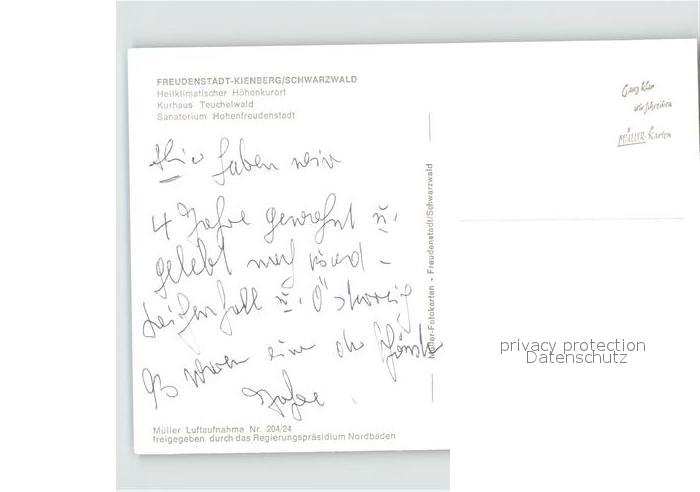 FREUDENSTADT-KIENBERG/SCHWARZWALD
Heilklimatischer Höhenkurort
Kurhaus Teuchelwald
Sanatorium Hohenfreudenstadt
Hier haben wir
4 Jahre gewohnt u.
gelebt nach
u. Österreich
Es waren eine der schönste
Jahre.
Müller Luftaufnahme Nr. 204/24
freigegeben durch das Regierungspräsidium Nordbaden
Müller-Fotokarten - Freudenstadt/Schwarzwald
Ganz klar
wir schreiben
MÜLLER-Karten
privacy protection
Datenschutz